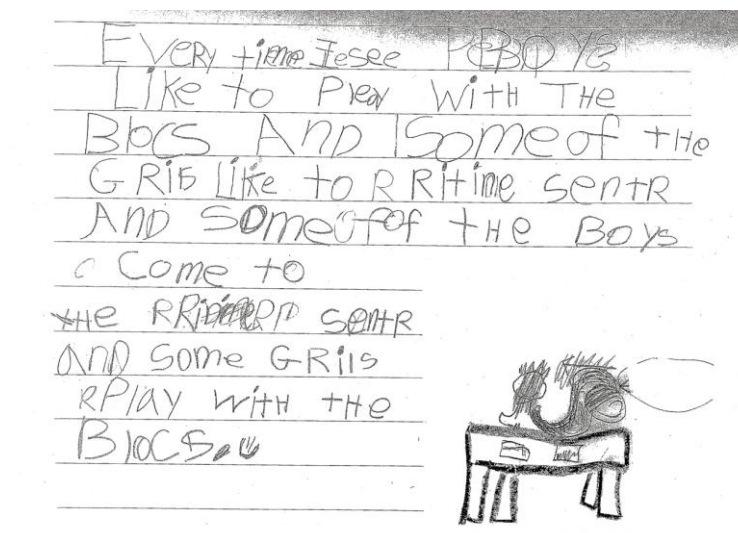 EVeRy time Iesee BOYS
Like to Play WitH THe
BlocS AND Some of tHe
GRils Like to RRitine sentR
AND Some of tHe Boys
Come to
tHe sentR
AND Some GRils
RPlAY WitH tHe
BlocS.